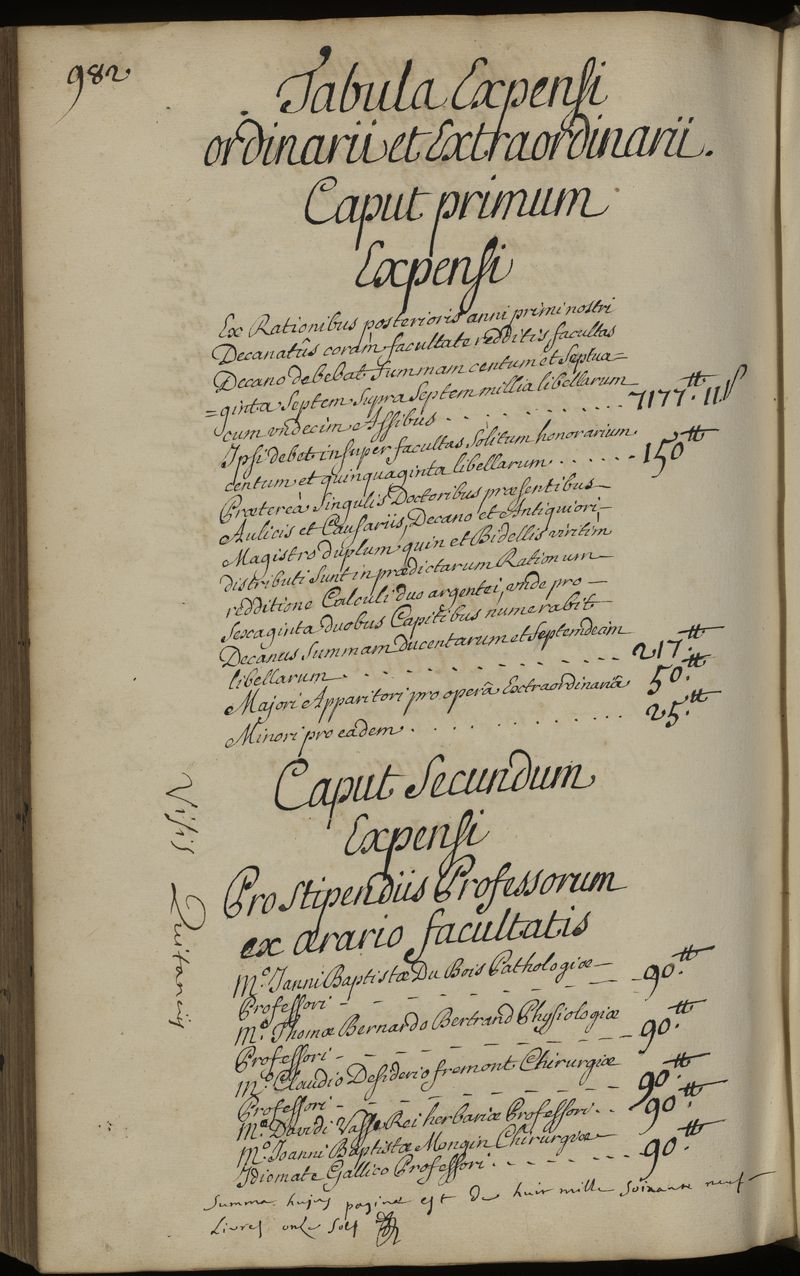 982
Tabula Expensi
ordinarii et Extraordinarii.
Caput primum
Expensi
Ex Rationibus posterioris anni primi nostri
Decanatûs coram facultate redditis facultas
Decano debebat Summam centum et Septua=
=ginta Septem Supra Septem millia libellarum
cum undecim Assibus . . . . . . . . . . . 7177.tt 11s
Ipsi debet insuper facultas Solitum honorarium
centum et quinquaginta libellarum . . . . . . 150tt
Præterea Singulis Doctoribus præsentibus
Aulicis et Causariis, Decano et Antiquiori
Magistro duplum quin et Bidellis viritim
distributi Sunt in prædictarum Rationum
redditione Calculi duo argentei, unde pro
Sexaginta duobus Capitibus numerabit
Decanus Summam ducentarum et Septemdecim
libellarum . . . . . . . . . . . . 217.tt
Majori Apparitori pro operâ Extraordinariâ 50.tt
Minori pro eadem . . . . . . . . . . . 25.tt
Caput Secundum
Expensi
Pro Stipendiis Professorum
ex ærario facultatis
Visis Quitanciis
M.o Janni Baptistæ Du Bois Pathologiæ
Professori - - - - - - - - - 90.tt
M.o Thomæ Bernardo Bertrand Physiologiæ
Professori - - - - - - - - - 90.tt
M.o Claudio Desiderio fremont Chirurgiæ
Professori - - - - - - - - - 90.tt
M.o Davidi Vasse Rei herbariæ Professori . . 90.tt
M.o Joanni Baptistæ Mongin Chirurgiæ
Idiomate Gallico Professori . . . . . . . 90.tt
Summa hujus paginæ est de huit mille Soixante neuf
Livres onze Sols